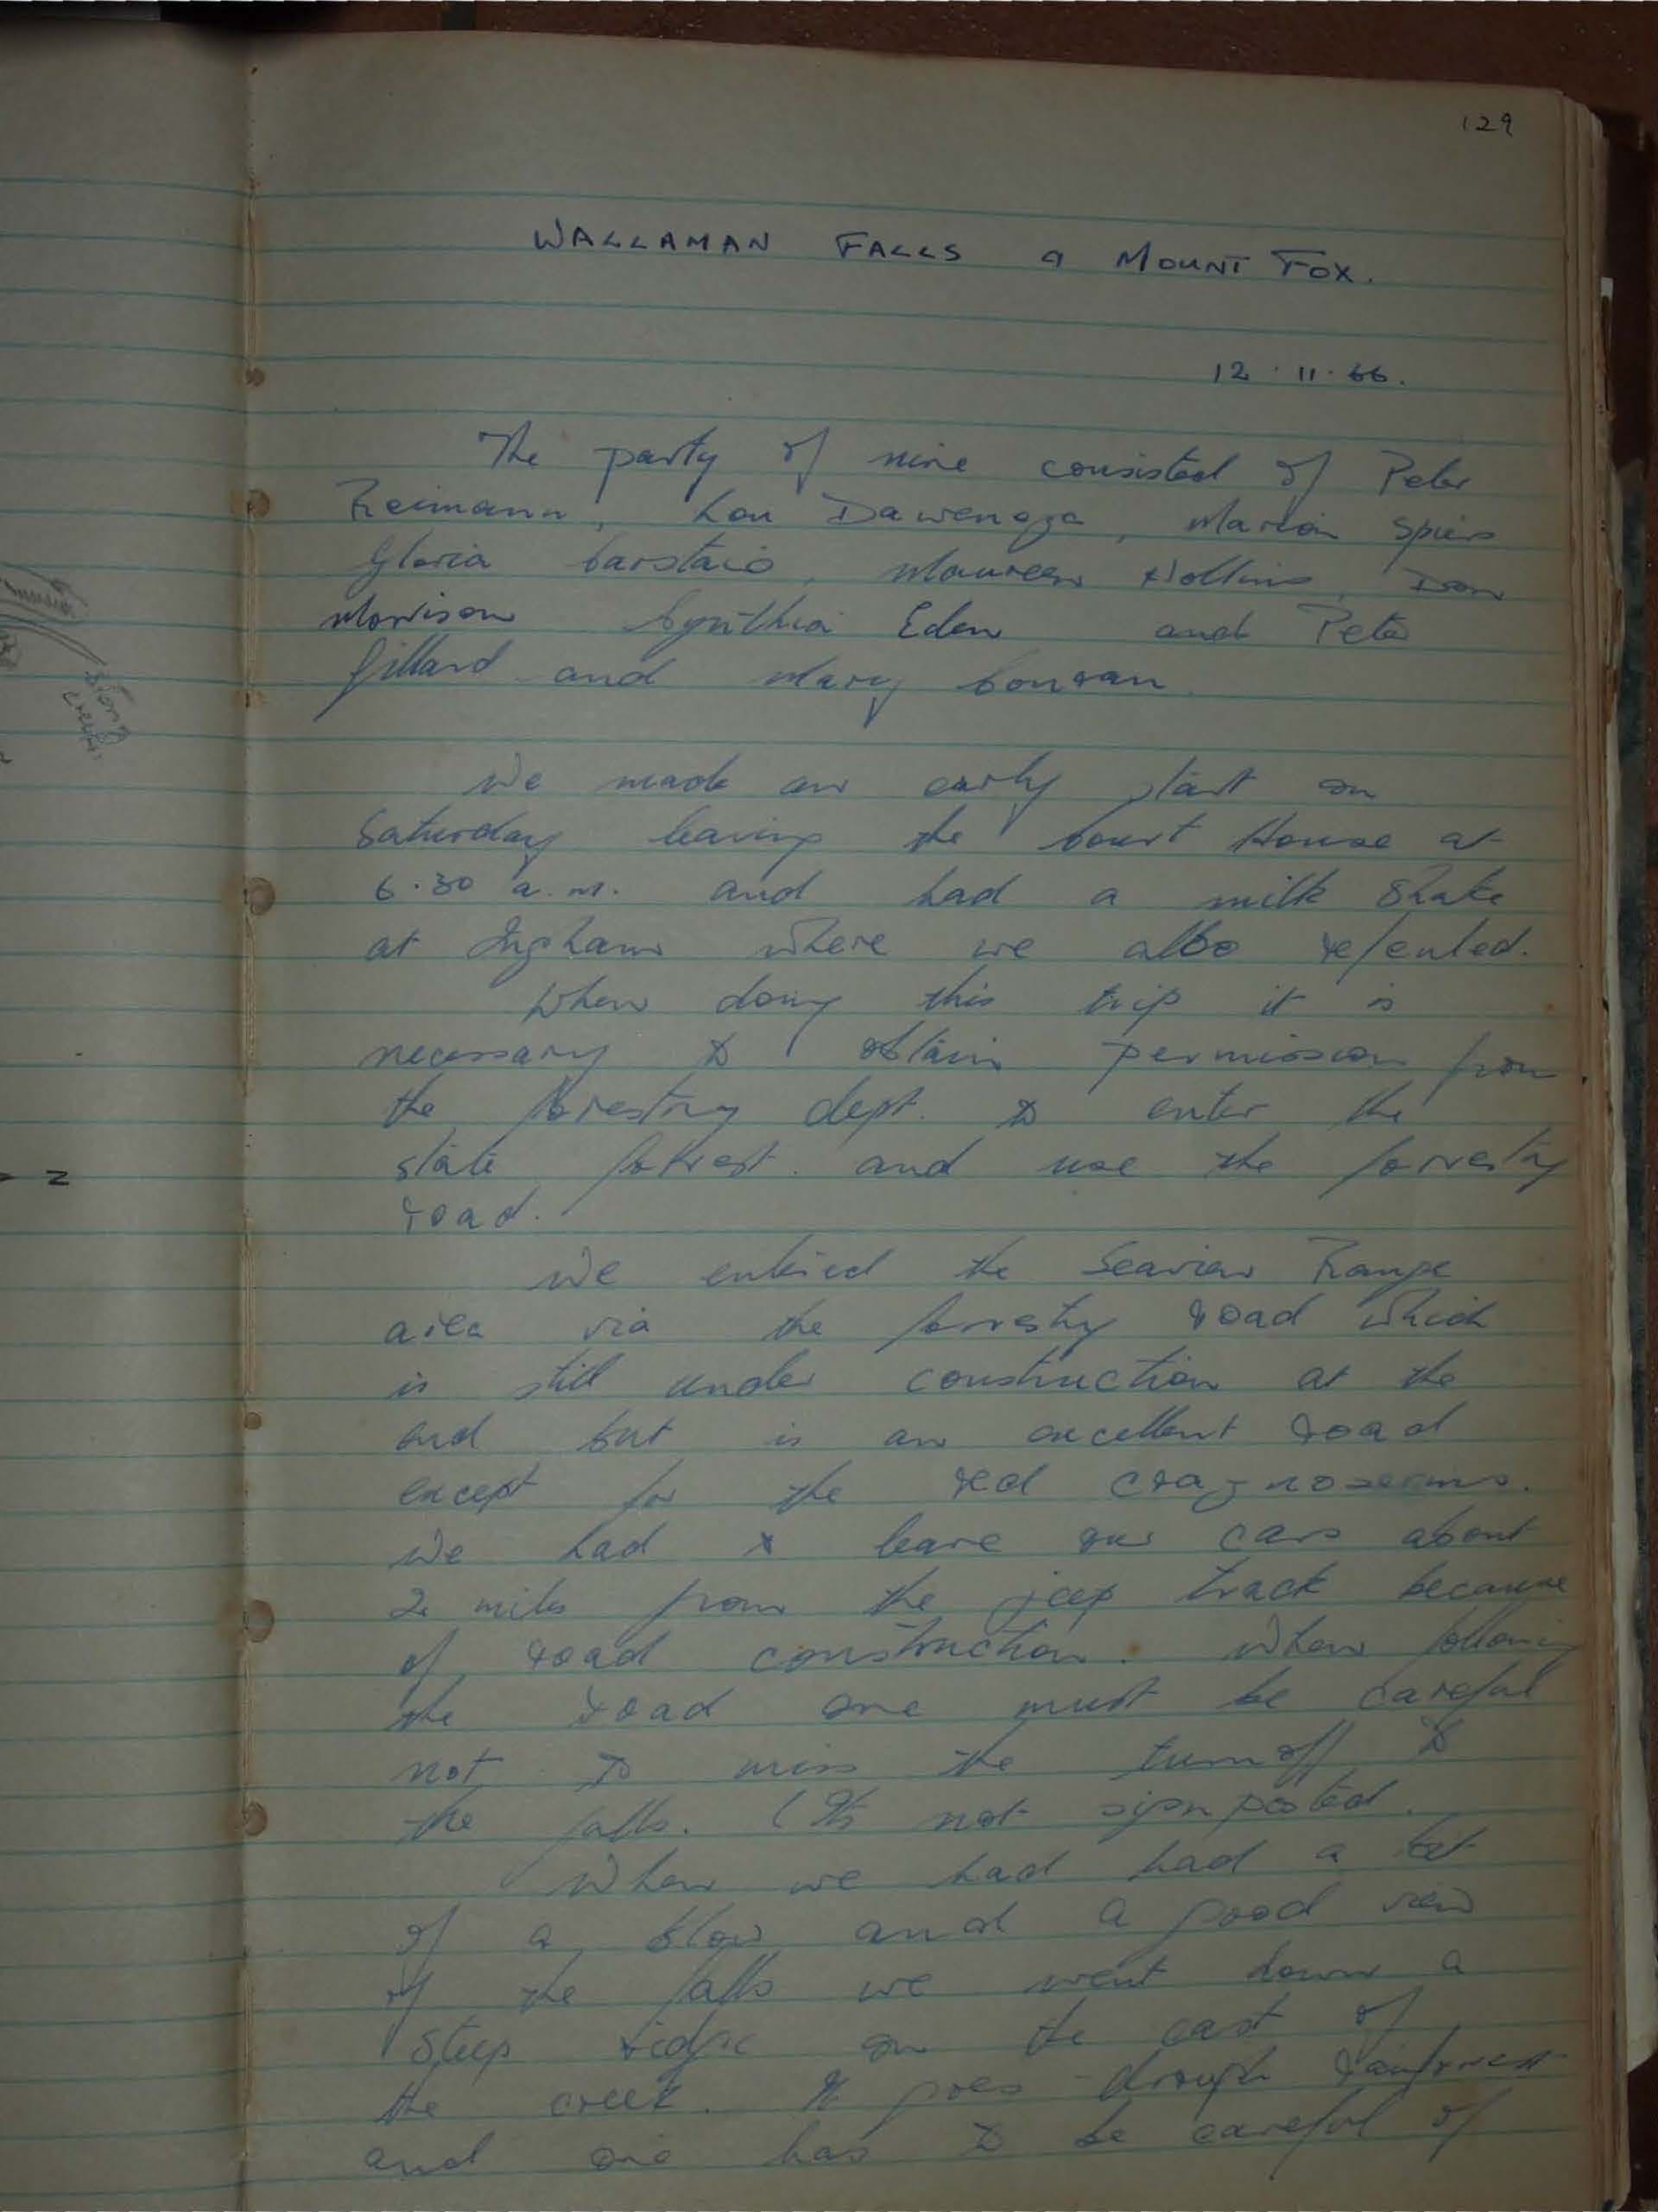 129
WALLAMAN FALLS & MOUNT FOX.
12.11.66.
The party of nine consisted of Peter
Reimann, Lou Dawenaga, Marion Spiers
Gloria Carstairs, Maureen Hollins, Don
Morrison Cynthia Eden and Peter
Gillard and Mary Conran.
We made an early start on
Saturday leaving the Court House at
6.30 a.m. and had a milk shake
at Ingham where we also refueled.
When doing this trip it is
necessary to obtain permission from
the forestry dept. to enter the
state forest. and use the forrestry
road.
We entered the Seaview Range
area via the forrestry road which
is still under construction at the
end but is an excellent road
except for the red
We had to leave our cars about
2 miles from the jeep track because
of road construction. When following
the road one must be careful
not to miss the turn off to
the falls. (It's not signposted.
When we had had a bit
of a blow and a good view
of the falls we went down a
steep ridge on the east of
the creek. It goes through rainforrest
and one has to be careful of
Stony
Creek
z